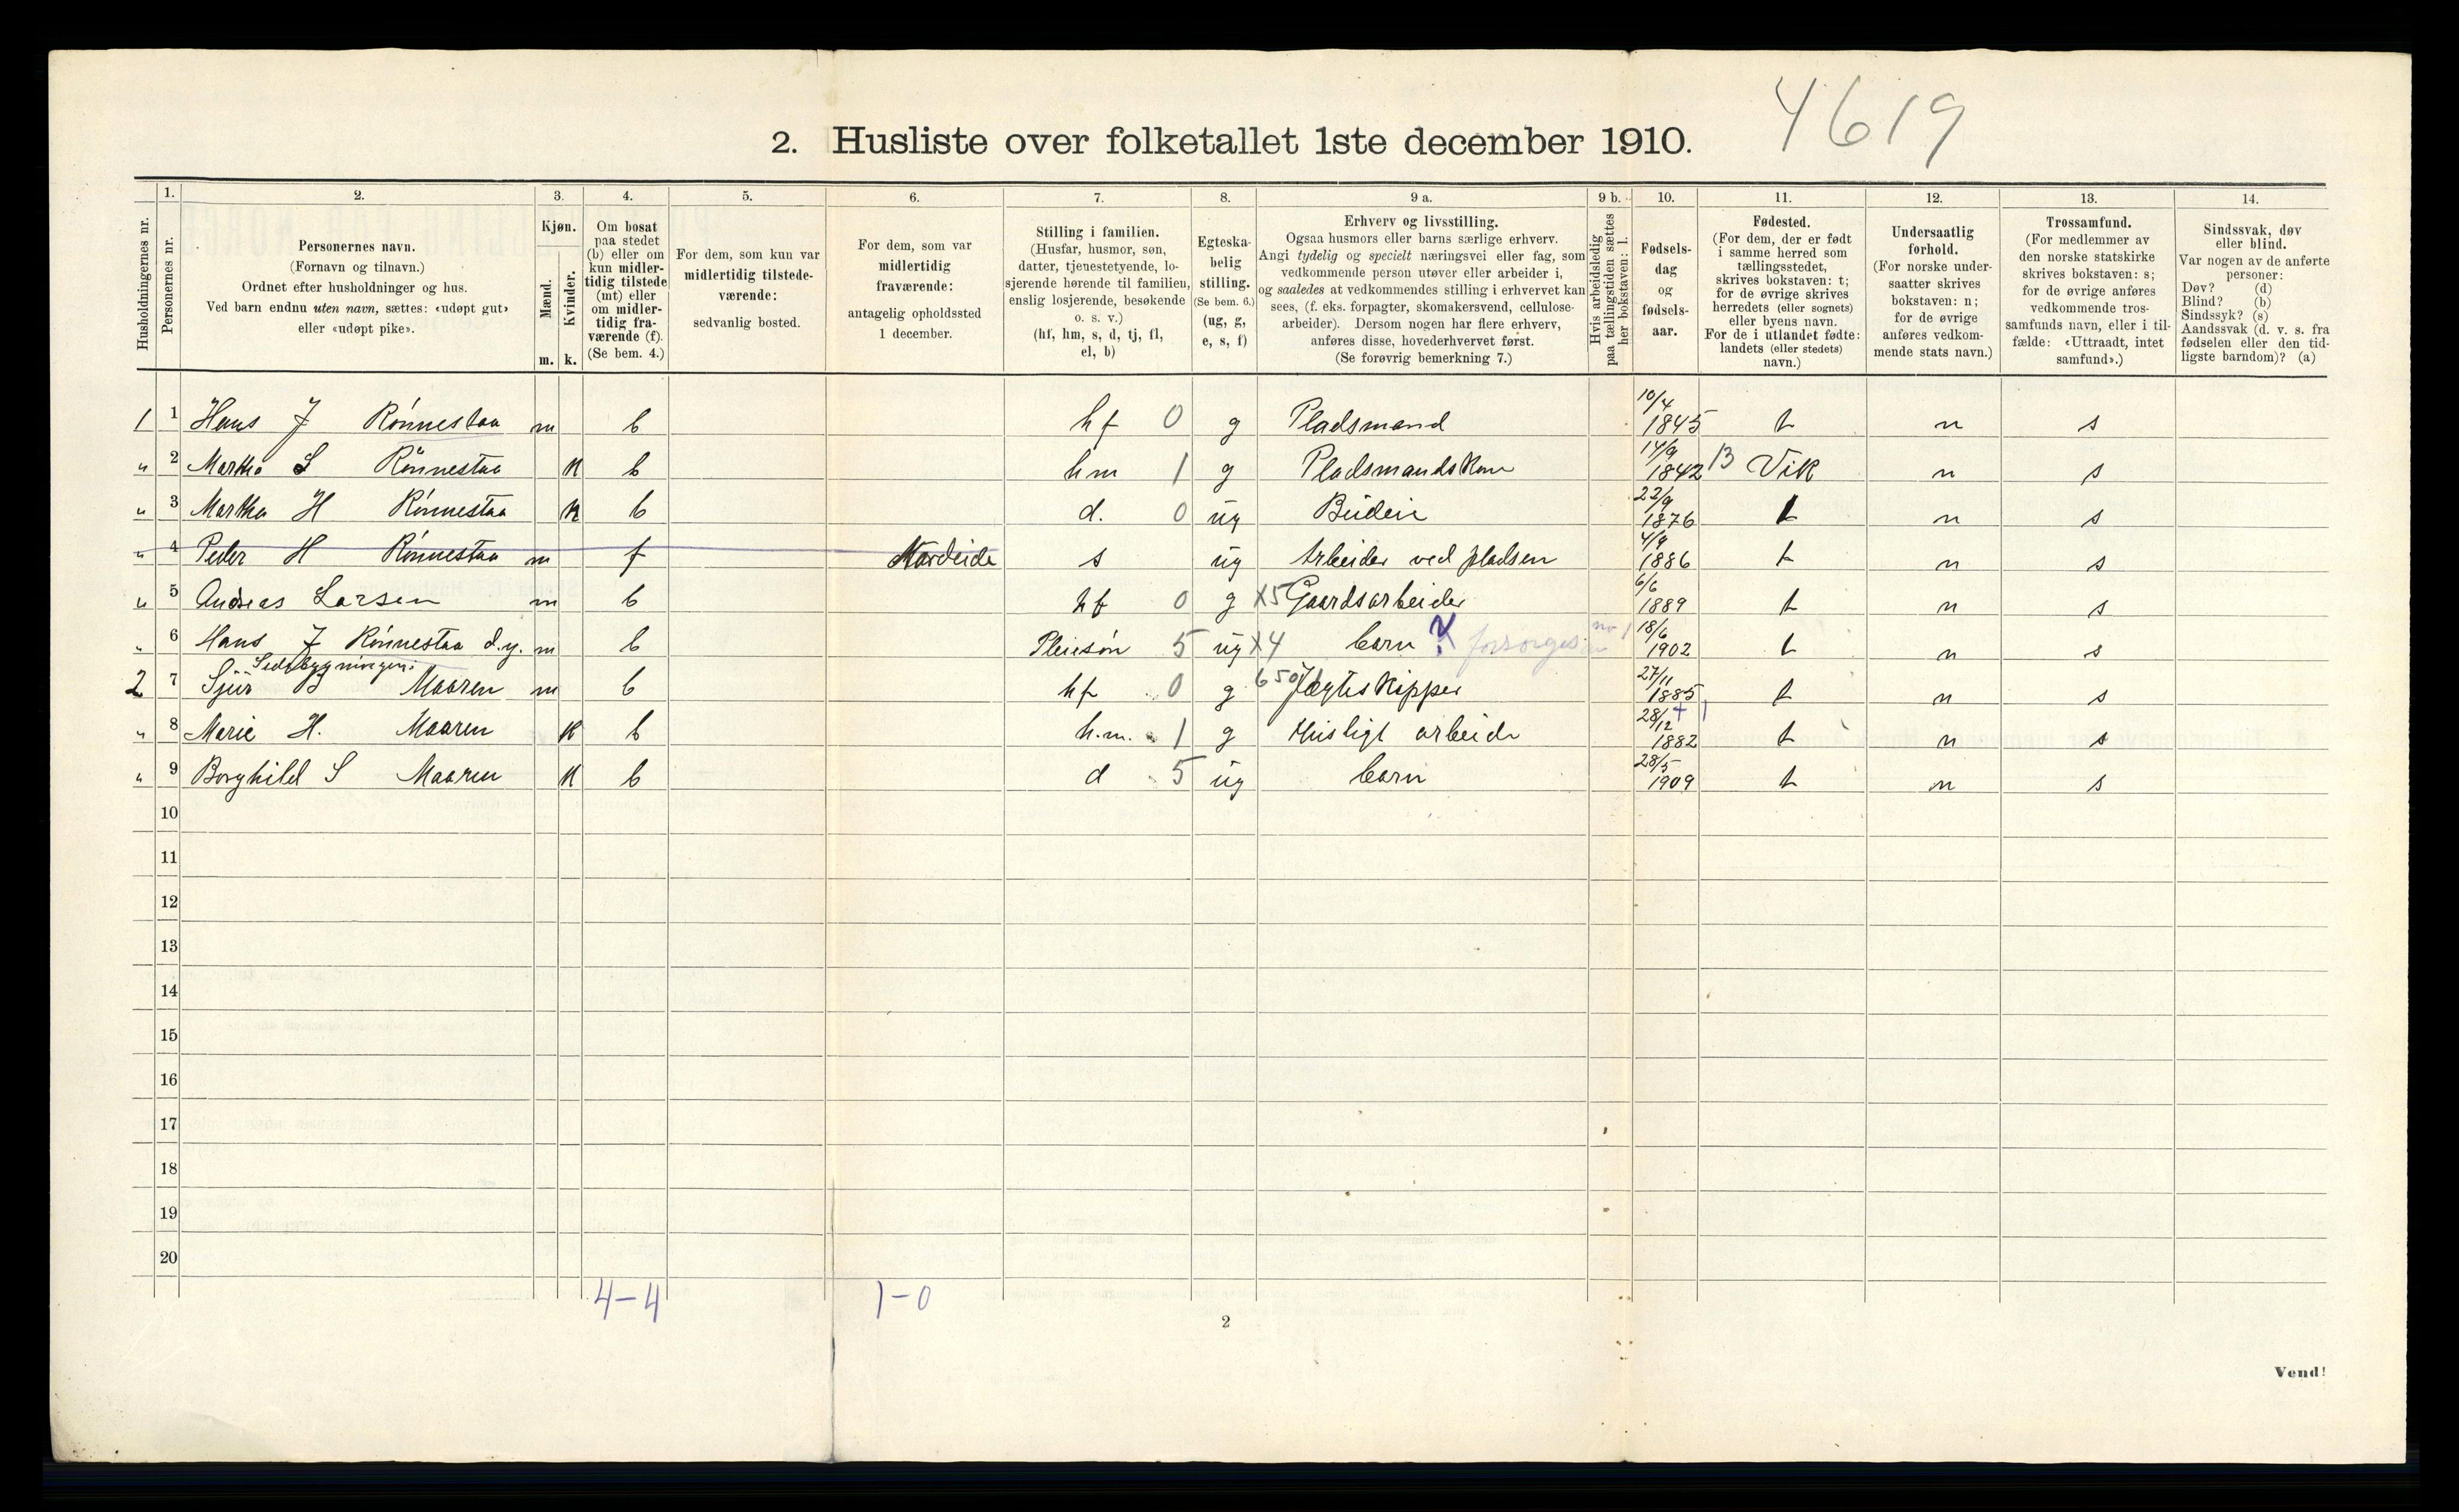 4619
2. Husliste over folketallet 1ste december 1910.
Husholdningernes nr.
1.
Personernes nr.
2.
Personernes navn.
(Fornavn og tilnavn.)
Ordnet efter husholdninger og hus.
Ved barn endnu uten navn, sættes: «udøpt gut»
eller «udøpt pike».
3.
Kjøn.
Mænd.
Kvinder.
m. k.
4.
Om bosat
paa stedet
(b) eller om
kun midler-
tidig tilstede
(mt) eller
om midler-
tidig fra-
værende (f).
(Se bem. 4.)
5.
For dem, som kun var
midlertidig tilstede-
værende:
sedvanlig bosted.
6.
For dem, som var
midlertidig
fraværende:
antagelig opholdssted
1 december.
7.
Stilling i familien.
(Husfar, husmor, søn,
datter, tjenestetyende, lo-
sjerende hørende til familien,
enslig losjerende, besøkende
o. s. v.)
(hf, hm, s, d, tj, fl,
el, b)
8.
Egteska-
belig
stilling.
(Se bem. 6.)
(ug, g,
e, s, f)
9 a.
Erhverv og livsstilling.
Ogsaa husmors eller barns særlige erhverv.
Angi tydelig og specielt næringsvei eller fag, som
vedkommende person utøver eller arbeider i,
og saaledes at vedkommendes stilling i erhvervet kan
sees, (f. eks. forpagter, skomakersvend, cellulose-
arbeider). Dersom nogen har flere erhverv,
anføres disse, hovederhvervet først.
(Se forøvrig bemerkning 7.)
9 b.
Hvis arbeidsledig
paa tællingstiden sættes
her bokstaven: l.
10.
Fødsels-
dag
og
fødsels-
aar.
11.
Fødested.
(For dem, der er født
i samme herred som
tællingsstedet,
skrives bokstaven: t;
for de øvrige skrives
herredets (eller sognets)
eller byens navn.
For de i utlandet fødte:
landets (eller stedets)
navn.)
12.
Undersaatlig
forhold.
(For norske under-
saatter skrives
bokstaven: n;
for de øvrige
anføres vedkom-
mende stats navn.)
13.
Trossamfund.
(For medlemmer av
den norske statskirke
skrives bokstaven: s;
for de øvrige anføres
vedkommende tros-
samfunds navn, eller i til-
fælde: «Uttraadt, intet
samfund».)
14.
Sindssvak, døv
eller blind.
Var nogen av de anførte
personer:
Døv? (d)
Blind? (b)
Sindssyk? (s)
Aandssvak (d. v. s. fra
fødselen eller den tid-
ligste barndom)? (a)
1 1 Hans J Rønnestaa m b hf 0 g Pladsmand 10/4 1845 t n s
" 2 Martha S Rønnestaa k b hm 1 g Pladsmandskone 14/9 1842 13 Vik n s
" 3 Martha H Rønnestaa k b d. 0 ug Budeie 22/9 1876 t n s
" 4 Peder H Rønnestaa m f Nordeide s ug Arbeider ved pladsen 4/9 1886 t n s
" 5 Andreas Larsen m b hf 0 g X5 Gaardsarbeider 6/6 1889 t n s
" 6 Hans J Rønnestaa d.y. m b Pleiesøn 5 ug X4 barn forsørges no 1 18/6 1902 t n s
Sidebygningen:
2 7 Sjur B Maaren m b hf 0 g 650 Jægteskipper 27/11 1885 t n s
" 8 Marie H. Maaren k b h.m. 1 g Husligt arbeide 28/12 1882 t n s
" 9 Borghild S Maaren k b d 5 ug barn 28/5 1909 t n s
10
11
12
13
14
15
16
17
18
19
20
4-4 1-0
2
Vend!